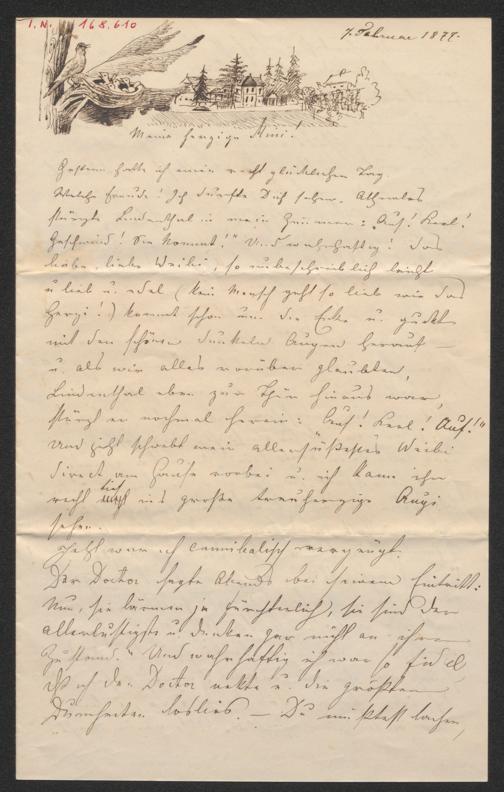 I. N. 168.610
7. Februar 1877.
Meine herzige Ami!
Gestern hatte ich einen recht glücklichen Tag.
Welche Freude! Ich durfte Dich sehen. Athemlos
stürzte Lindenthal in mein Zimmer: „Auf! Karl!
Geschwind! Sie kommt!" Und wahrhaftig! das
liebe, liebe Weibi, so unbeschreiblich leicht
u lieb u. edel (kein Mensch geht so lieb wie das
Herzi!) kommt schon um die Ecke u. guckt
mit den schönen dunkeln Augen herauf —
u. als wir alles vorüber glaubten,
Lindenthal eben zur Thür hinaus war,
stürzt er nochmal herein: „Auf! Karl! Auf!"
Und jetzt schwebt mein allersüßestes Weibi
direct am Hause vorbei u. ich kann ihm
recht tief ins große treuherzige Augi
sehen.
Jetzt war ich cannibalisch vergnügt.
Der Doctor sagte Abends bei seinem Eintritt:
Nun, sie lärmen ja fürchterlich, sie sind der
allerlustigste u denken gar nicht an ihren
Zustand." Und wahrhaftig ich war so fidel,
daß ich den Doctor nekte u. die größten
Dummheiten losließ. — Du müßtest lachen,